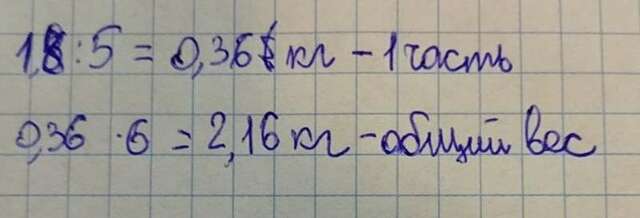 1,8 : 5 = 0,36 кг - 1 часть
0,36 · 6 = 2,16 кг - общий вес